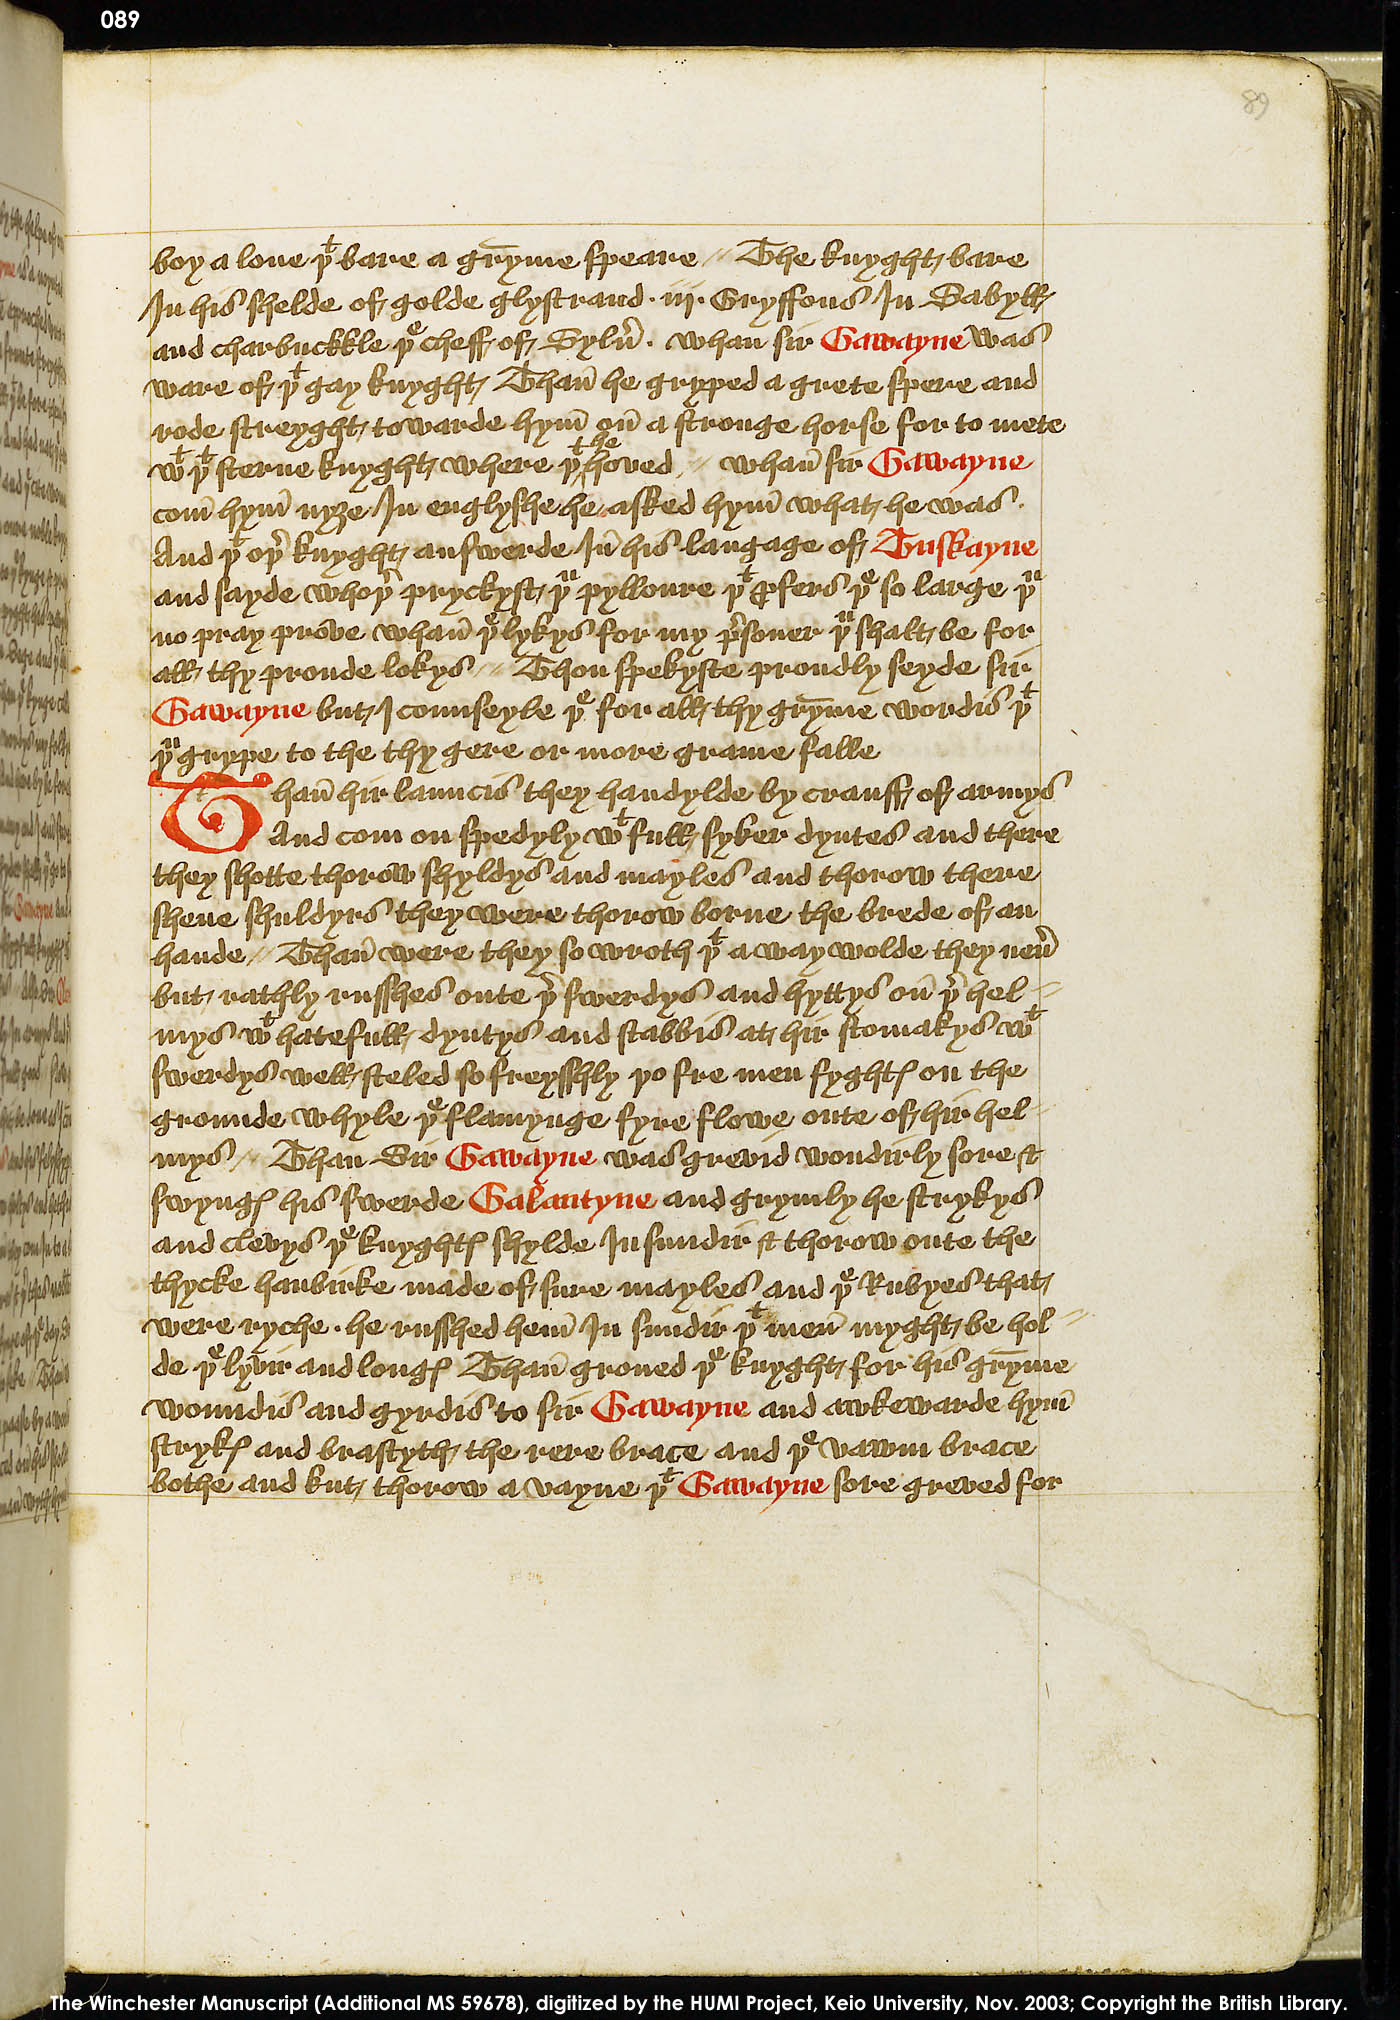 089
89
boy a lone þᵗ bare a gryme speare // The knyght bare
In his shelde of golde glystrand · iij · Gryffons In Sabyll
and charbuckkle þᵉ cheff of Sylu̕ · whan sir Gawayne was
ware of þᵗ gay knyght Than̄ he gryped a grete spere and
rode streyght towarde hym̄ on̄ a stronge horse for to mete
wᵗ þᵗ sterne knyght where þᵗ he hoved // whan̄ sir Gawayne
com̄ hym̄ nyȝe In englyshe he asked hym̄ what he was ·
And þᵗ oþ̕ knyght answerde In̄ his langage of Tuskayne
and sayde whoþ̕ pryckyst þᵘ pylloure þᵗ ꝓfers þᵉ so large þᵘ
no pray prove whan̄ þᵉ lykys for my p̕soner þᵘ shalt be for
all thy proude lokys // Thou spekyste proudly seyde sir
Gawayne but I counseyle þᵉ for all thy gryme wordis þᵗ
þᵘ grype to the thy gere or more grame falle
Than̄ hir launcis they handylde by crauff of armys
And com on spedyly wᵗ full syker dyntes and there
they shotte thorow shyldys and mayles and thorow there
shene shuldyrs they were thorow borne the brede of an
hande // Than̄ were they so wroth þᵗ a way wolde they neu̕
but rathly russhes oute þ̕ swerdys and hyttys on̄ þ̕ hel//
mys wᵗ hatefull dyntys and stabbis at hir stomakys wᵗ
swerdys well steled so freysshly þo fre men fyghtꝭ on the
grounde whyle þᵉ flamynge fyre flowe oute of hir hel//
mys // Than Sir Gawayne was grevid wondirly sore &
swyngꝭ his swerde Galantyne and grymly he strykys
and clevys þᵉ knyghtꝭ shylde In sundir & thorow oute the
thycke haubirke made of sure mayles and þᵉ Rubyes that
were ryche · he russhed hem̄ In sundir þᵗ men̄ myght be hol//
de þᵉ lyvir and longꝭ Than̄ groned þᵉ knyght for his gryme
woundis and gyrdis to sir Gawayne and awkewarde hym̄
strykꝭ and brastyth the rere brace and þᵉ vawm brace
bothe and kut thorow a vayne þᵗ Gawayne sore greved for
The Winchester Manuscript (Additional MS 59678), digitized by the HUMI Project, Keio University, Nov. 2003; Copyright the British Library.